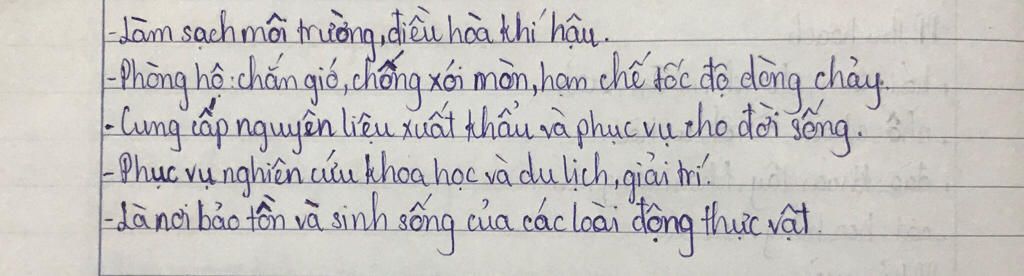 -Làm sạch môi trường, điều hòa khí hậu.
-Phòng hộ: chắn gió, chống xói mòn, hạn chế tốc độ dòng chảy.
-Cung cấp nguyên liệu xuất khẩu và phục vụ cho đời sống.
-Phục vụ nghiên cứu khoa học và du lịch, giải trí.
-Là nơi bảo tồn và sinh sống của các loài động thực vật.